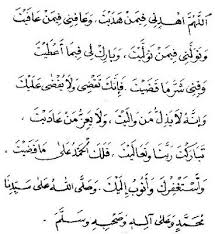 اَللّٰهُمَّ اهْدِنِيْ فِيْمَنْ هَدَيْتَ، وَعَافِنِيْ فِيْمَنْ عَافَيْتَ
وَتَوَلَّنِيْ فِيْمَنْ تَوَلَّيْتَ، وَبَارِكْ لِيْ فِيْمَا أَعْطَيْتَ
وَقِنِيْ شَرَّ مَا قَضَيْتَ. فَإِنَّكَ تَقْضِيْ وَلَا يُقْضٰى عَلَيْكَ
وَإِنَّهُ لَا يَذِلُّ مَنْ وَالَيْتَ. وَلَا يَعِزُّ مَنْ عَادَيْتَ.
تَبَارَكْتَ رَبَّنَا وَتَعَالَيْتَ، فَلَكَ الْحَمْدُ عَلٰى مَا قَضَيْتَ،
وَأَسْتَغْفِرُكَ وَأَتُوْبُ إِلَيْكَ. وَصَلَّى اللهُ عَلٰى سَيِّدِنَا
مُحَمَّدٍ وَعَلٰى آلِهِ وَصَحْبِهِ وَسَلَّمَ.